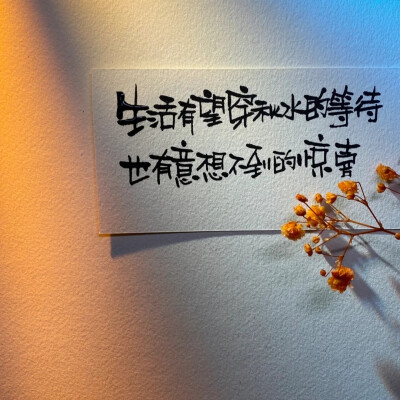 生活有望穿秋水的等待
也有意想不到的惊喜